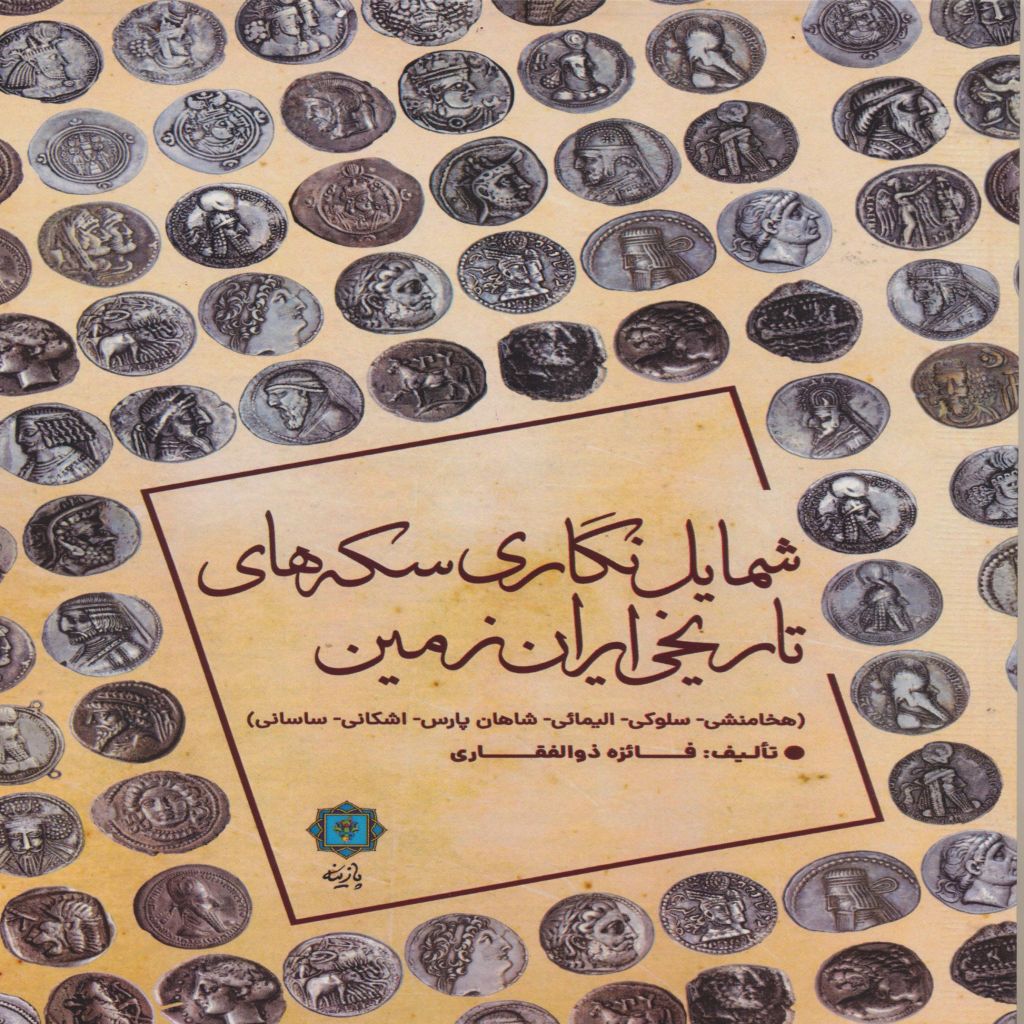 شمایل نگاری سکه های
تاریخی ایران زمین
(هخامنشی- سلوکی- الیمائی- شاهان پارس- اشکانی- ساسانی)
● تألیف: فائزه ذوالفقاری
پازینه